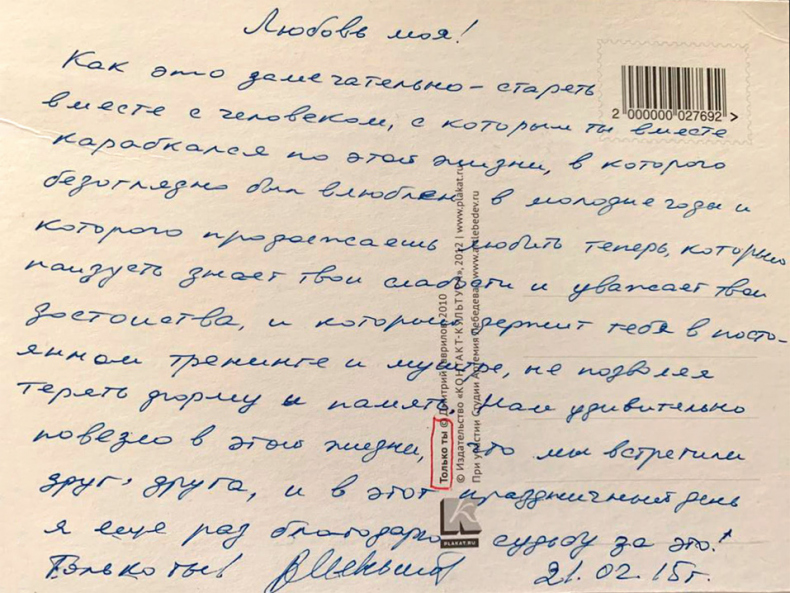 Любовь моя!
Как это замечательно – стареть
вместе с человеком, с которым ты вместе
карабкался по этой жизни, в которого
безоглядно был влюблён в молодые годы и
которого продолжаешь любить теперь, который
наизусть знает твои слабости и уважает твои
достоинства, и который держит тебя в посто-
янном тренинге и муштре, не позволяя
терять форму и память. Нам удивительно
повезло в этой жизни, что мы встретили
друг друга, и в этот праздничный день
я еще раз благодарю судьбу за это!
Только ты!
21.02.15г.
2 000000 027692 >
Только ты © Дмитрий Гаврилов 2010
© Издательство «КОНТАКТ-КУЛЬТУРА», 2012 | www.plakat.ru
При участии Студии Артемия Лебедева www.artlebedev.ru
PLAKAT.RU